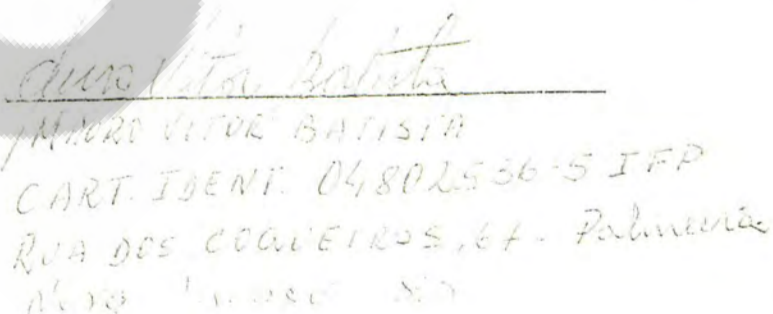 Vitor Batista
MAURO VITOR BATISTA
CART. IDENT. 04802536-5 IFP
RUA DOS COQUEIROS, 67 - Palmeira